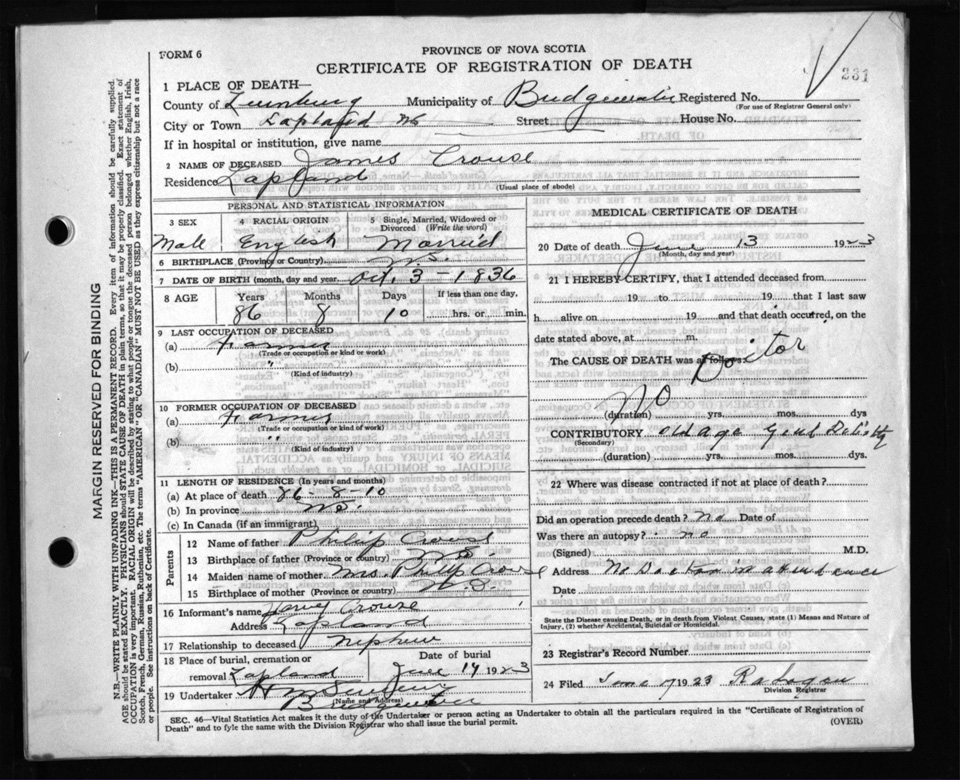 FORM 6
PROVINCE OF NOVA SCOTIA
CERTIFICATE OF REGISTRATION OF DEATH
231
1 PLACE OF DEATH—
County of Lunenburg Municipality of Bridgewater Registered No.
(For use of Registrar General only)
City or Town Lapland NS Street House No.
If in hospital or institution, give name
2 NAME OF DECEASED James Crouse
Residence Lapland
(Usual place of abode)
PERSONAL AND STATISTICAL INFORMATION
3 SEX 4 RACIAL ORIGIN 5 Single, Married, Widowed or Divorced (Write the word)
Male English Married
6 BIRTHPLACE (Province or Country) N.S.
7 DATE OF BIRTH (month, day and year) Oct, 3 - 1836
8 AGE Years Months Days If less than one day,
86 8 10 hrs. or min.
9 LAST OCCUPATION OF DECEASED
(a) Farmer
(Trade or occupation or kind or work)
(b) "
(Kind of industry)
10 FORMER OCCUPATION OF DECEASED
(a) Farmer
(Trade or occupation or kind of work)
(b) "
(Kind of industry)
11 LENGTH OF RESIDENCE (In years and months)
(a) At place of death 86-8-10
(b) In province N.S.
(c) In Canada (if an immigrant)
Parents
12 Name of father Philip Crouse
13 Birthplace of father (Province or country) N.S.
14 Maiden name of mother Mrs. Philip Crouse
15 Birthplace of mother (Province or country) N.S.
16 Informant's name Crouse
Address Lapland
17 Relationship to deceased Nephew
18 Place of burial, cremation or Date of burial
removal Lapland June 1923
19 Undertaker
(Name and Address)
Bridgewater
MEDICAL CERTIFICATE OF DEATH
20 Date of death June 13 1923
(Month, day and year)
21 I HEREBY CERTIFY, that I attended deceased from
19 to 19 that I last saw
h alive on 19 and that death occurred, on the
date stated above, at m.
The CAUSE OF DEATH was as follows:
No Doctor
(duration) yrs. mos. dys
CONTRIBUTORY old age Genl Debility
(Secondary)
(duration) yrs. mos. dys.
22 Where was disease contracted if not at place of death?
Did an operation precede death? no Date of
Was there an autopsy? no
(Signed) M.D.
Address No Doctor in attendance
Date
State the Disease causing Death, or in death from Violent Causes, state (1) Means and Nature of
Injury, (2) whether Accidental, Suicidal or Homicidal.
23 Registrar's Record Number
24 Filed June 1923
Division Registrar
SEC. 46—Vital Statistics Act makes it the duty of the Undertaker or person acting as Undertaker to obtain all the particulars required in the "Certificate of Registration of
Death" and to fyle the same with the Division Registrar who shall issue the burial permit. (OVER)
MARGIN RESERVED FOR BINDING
N.B.—WRITE PLAINLY WITH UNFADING INK—THIS IS A PERMANENT RECORD. Every item of information should be carefully supplied.
AGE should be stated EXACTLY. PHYSICIANS should STATE CAUSE OF DEATH in plain terms, so that it may be properly classified. Exact statement of
OCCUPATION is very important. RACIAL ORIGIN will be described by stating to what people or tongue the deceased person belonged whether English, Irish,
Scotch, French, German, Russian, Ruthenian, etc. The terms "AMERICAN" OR "CANADIAN" MUST NOT BE USED as they express citizenship but not a race
or people. See instructions on back of Certificate.